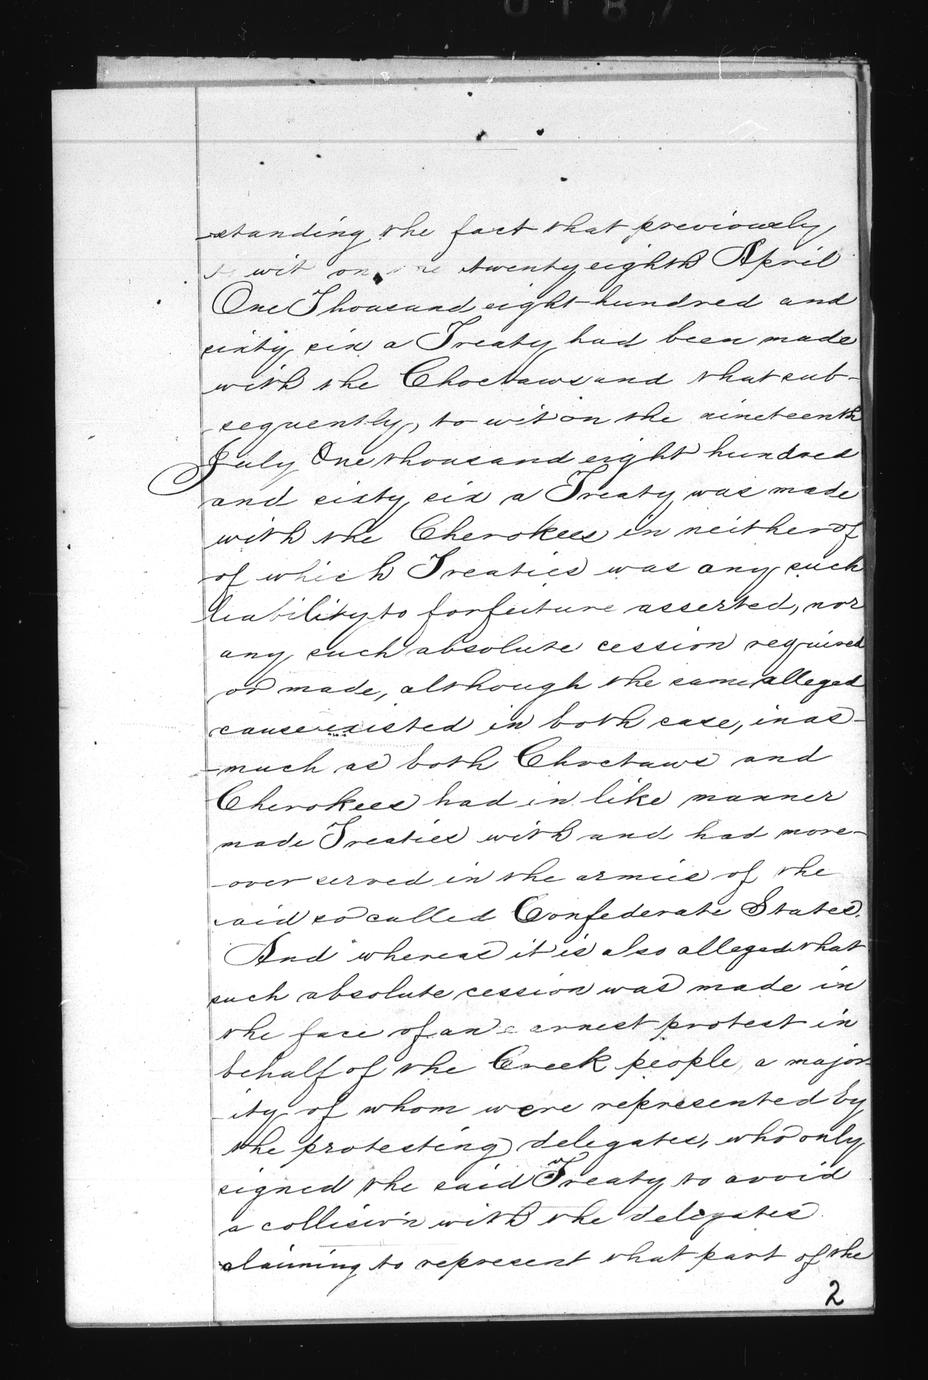 0187
-standing the fact that previously,
to wit on the twenty eighth April
One Thousand eight hundred and
sixty six a Treaty had been made
with the Choctaws and that sub-
-sequently, to wit on the nineteenth
July One thousand eight hundred
and sixty six a Treaty was made
with the Cherokees in neither of
of which Treaties was any such
liability to forfeiture asserted, nor
any such absolute cession required
or made, although the same alleged
cause existed in both case, inas-
-much as both Choctaws and
Cherokees had in like manner
made Treaties with and had more-
-over served in the armies of the
said so called Confederate States.
And whereas it is also alleged that
such absolute cession was made in
the face of an earnest protest in
behalf of the Creek people, a major-
-ity of whom were represented by
the protesting delegates, who only
signed the said Treaty to avoid
a collision with the delegates
claiming to represent that part of the
2